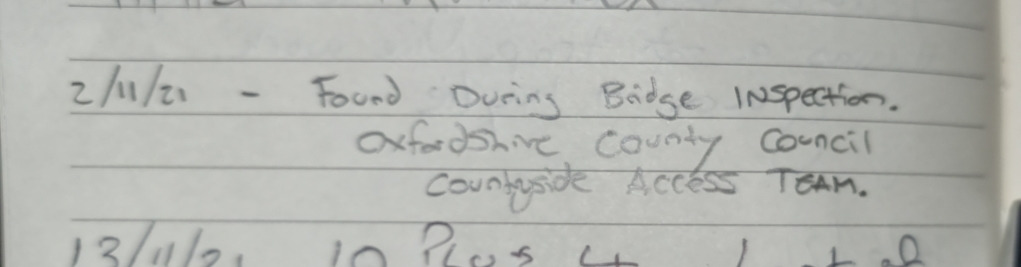 2/11/21 - Found During Bridge Inspection.
Oxfordshire County Council
Countryside Access Team.
13/11/21 10 Plus 4